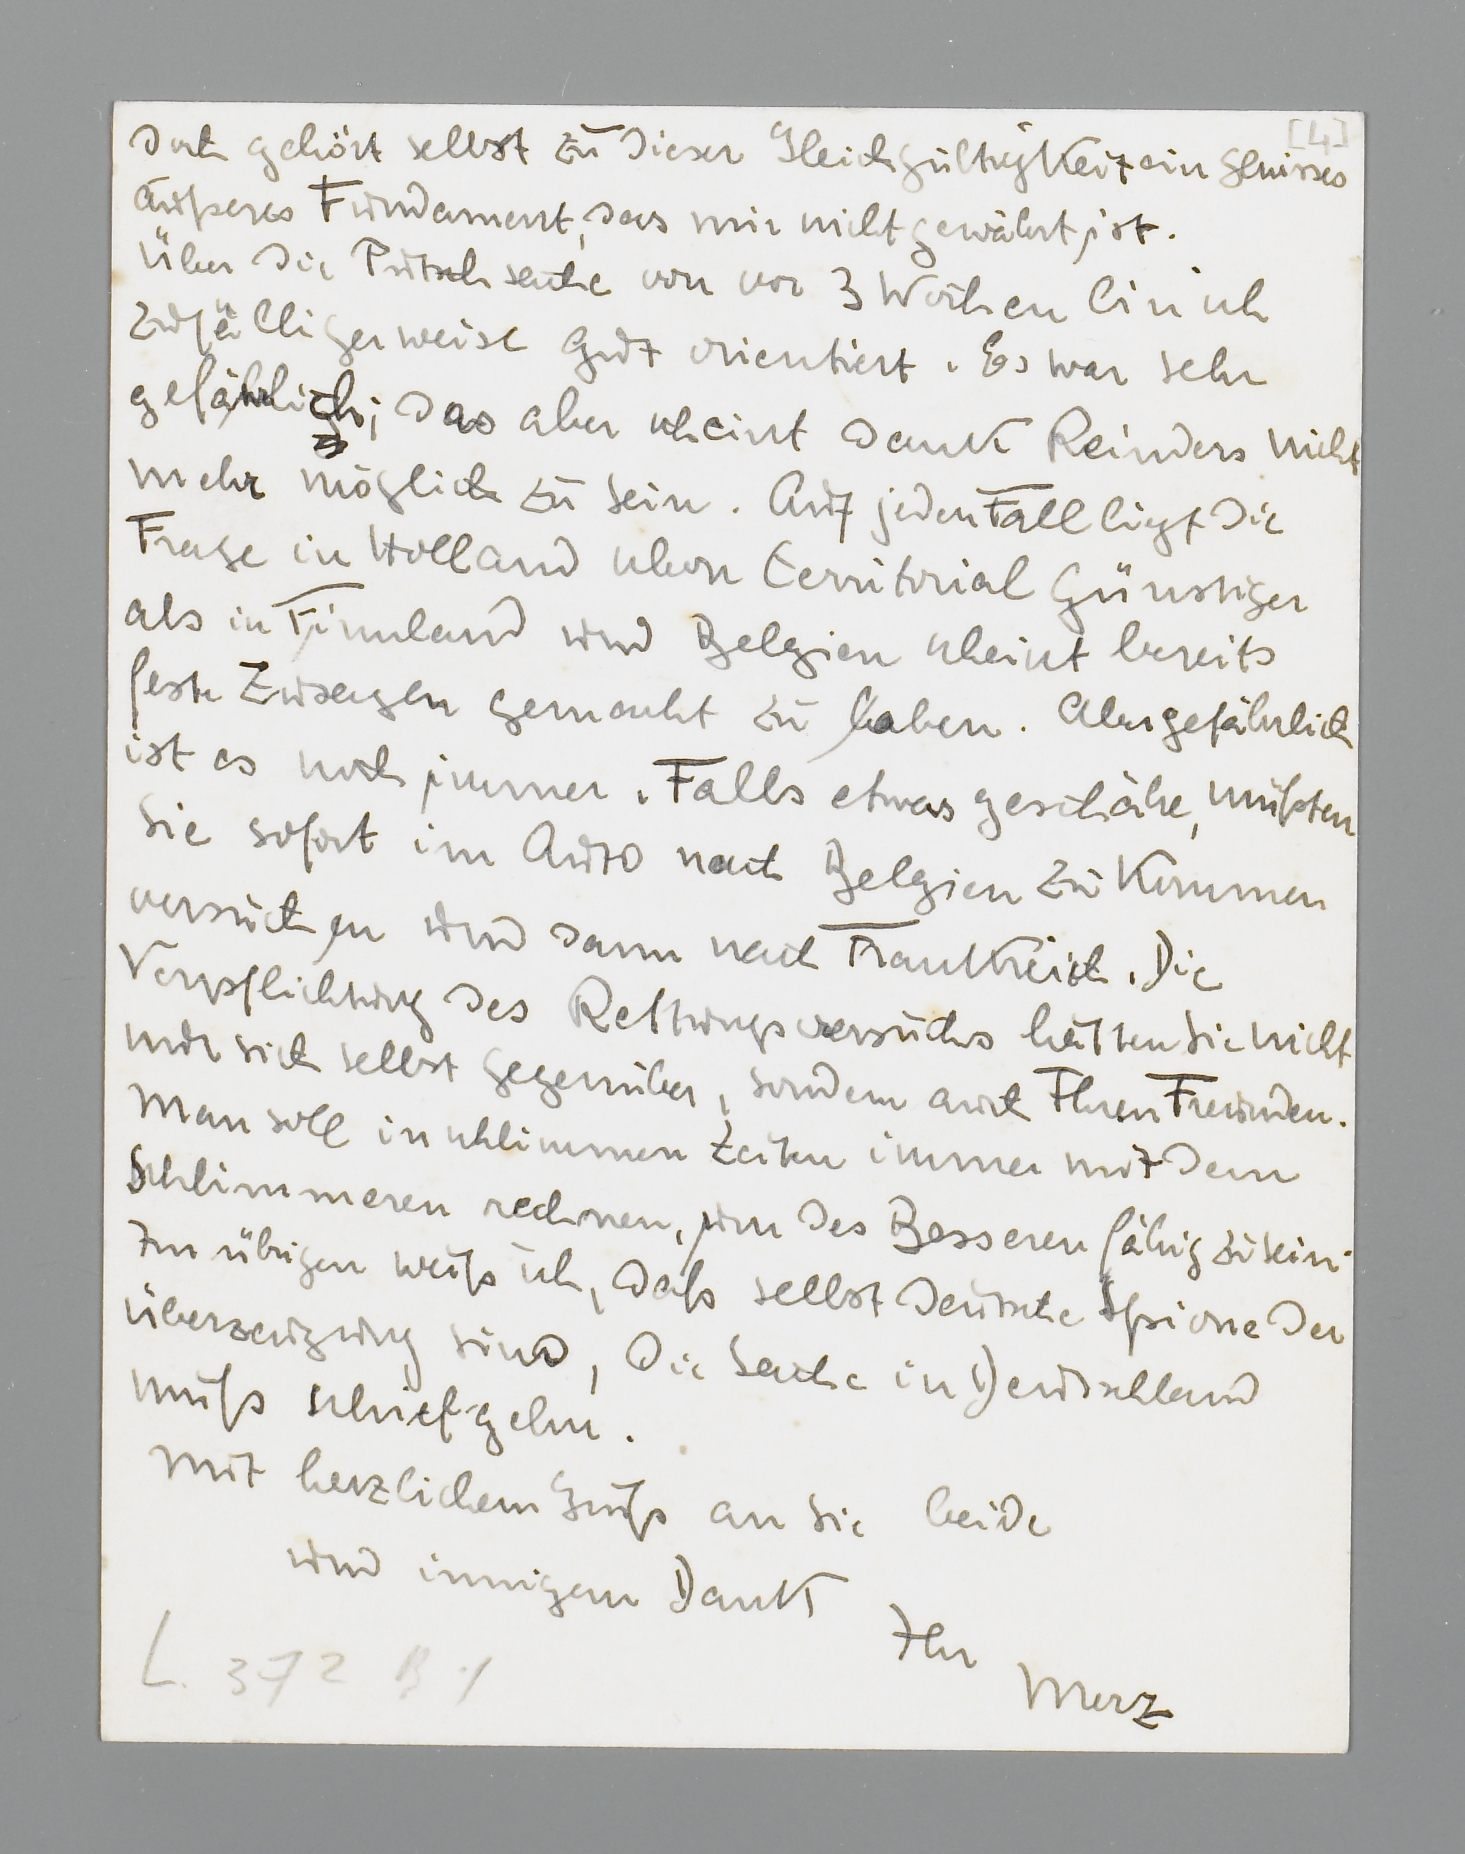 [4]
doch gehört selbst zu dieser Gleichgültigkeit ein gewisses
äußeres Fundament, das mir nicht gewährt ist.
Über die Putschsache von vor 3 Wochen bin ich
zufälligerweise gut orientiert. Es war sehr
gefährlich; das aber scheint dank Reinders nicht
mehr möglich zu sein. Auf jeden Fall liegt die
Frage in Holland schon territorial günstiger
als in Finnland und Belgien scheint bereits
feste Zusagen gemacht zu haben. Aber gefährlich
ist es noch immer. Falls etwas geschähe, müßten
Sie sofort im Auto nach Belgien zu kommen
versuchen und dann nach Frankreich. Die
Verpflichtung des Rettungsversuchs hätten Sie nicht
nur sich selbst gegenüber, sondern auch Ihren Freunden.
Man soll in schlimmen Zeiten immer mit dem
Schlimmeren rechnen, um des Besseren fähig zu sein.
Im übrigen weiß ich, daß selbst deutsche Spione der
Überzeugung sind, die Sache in Deutschland
muß schief gehn.
Mit herzlichem Gruß an Sie beide
und innigem Dank
Ihr
Merz
L. 372 B 1